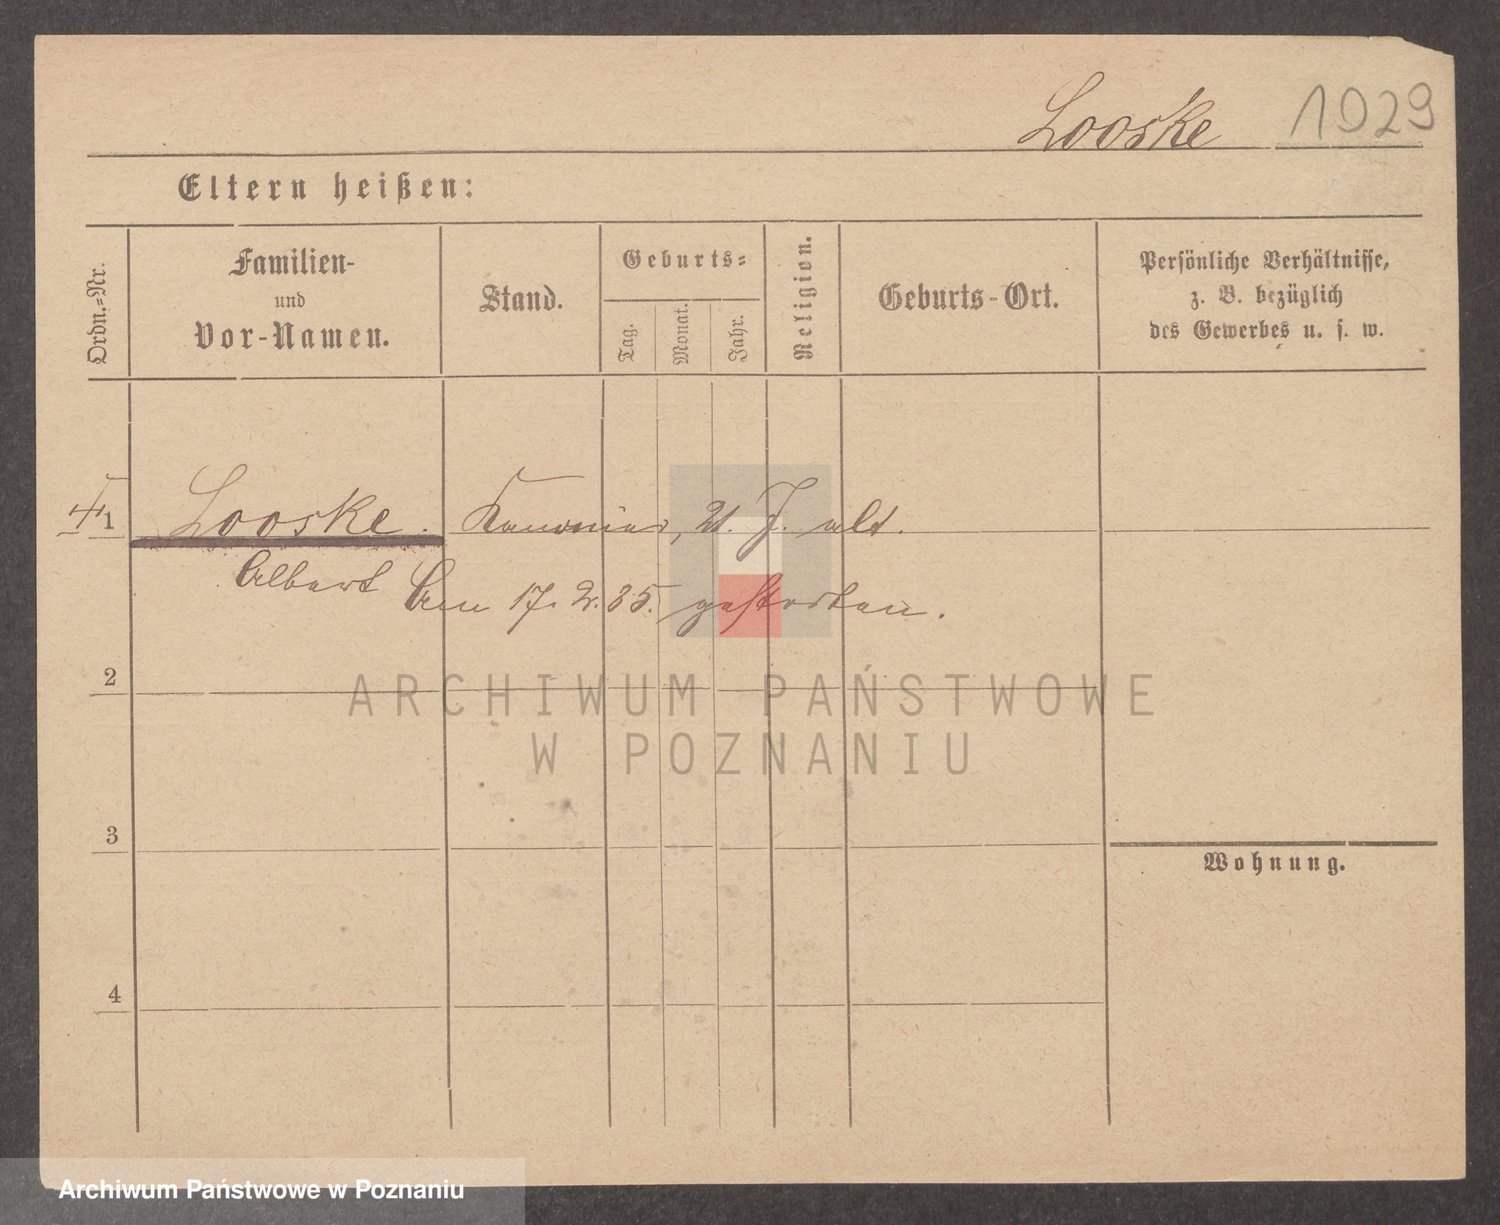 Looske 1029
Eltern heißen:
Ordn.=Nr.
Familien-
und
Vor-Namen.
Stand.
Geburts=
Tag.
Monat.
Jahr.
Religion.
Geburts-Ort.
Persönliche Verhältnisse,
z. B. bezüglich
des Gewerbes u. s. w.
1 Looske. Kanonier, 21. J. alt.
Albert Am 17. 2. 85. gestorben.
2
ARCHIWUM PAŃSTWOWE
W POZNANIU
3
Wohnung.
4
Archiwum Państwowe w Poznaniu